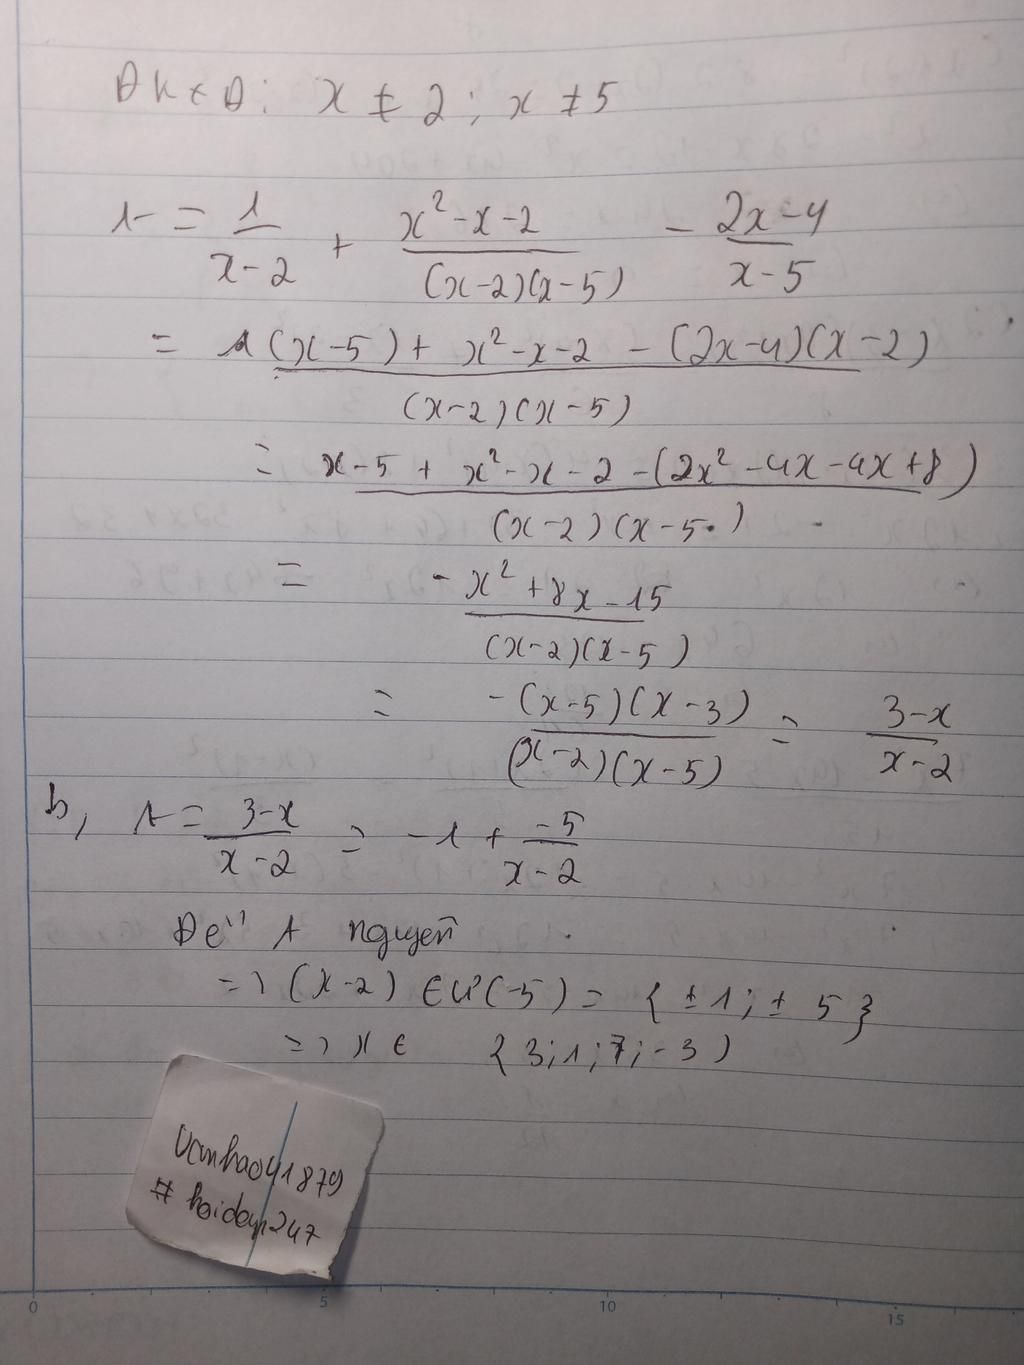 ĐKXĐ: x ≠ 2; x ≠ 5
A = 1/(x-2) + (x²-x-2)/((x-2)(x-5)) - (2x-4)/(x-5)
= (1(x-5) + x²-x-2 - (2x-4)(x-2))/((x-2)(x-5))
= (x-5 + x²-x-2-(2x²-4x-4x+8))/((x-2)(x-5))
= (-x²+8x-15)/((x-2)(x-5))
= (-(x-5)(x-3))/((x-2)(x-5)) = (3-x)/(x-2)
b, A = (3-x)/(x-2) = -1 + (-5)/(x-2)
Để A nguyên
=> (x-2) ∈ Ư(-5) = {±1; ±5}
=> x ∈ {3;1;7;-3)
Vanhao41879
# hoidap247
0 5 10 15